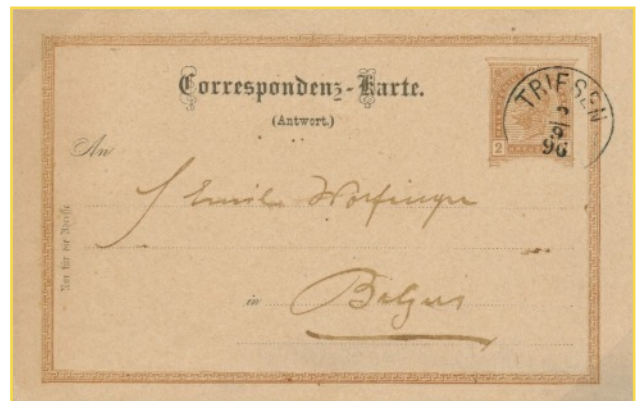 Correspondenz-Karte.
(Antwort.)
TRIESEN
9
96
2
An
Emil Wolfinger
in Balzers
Nur für die Adresse